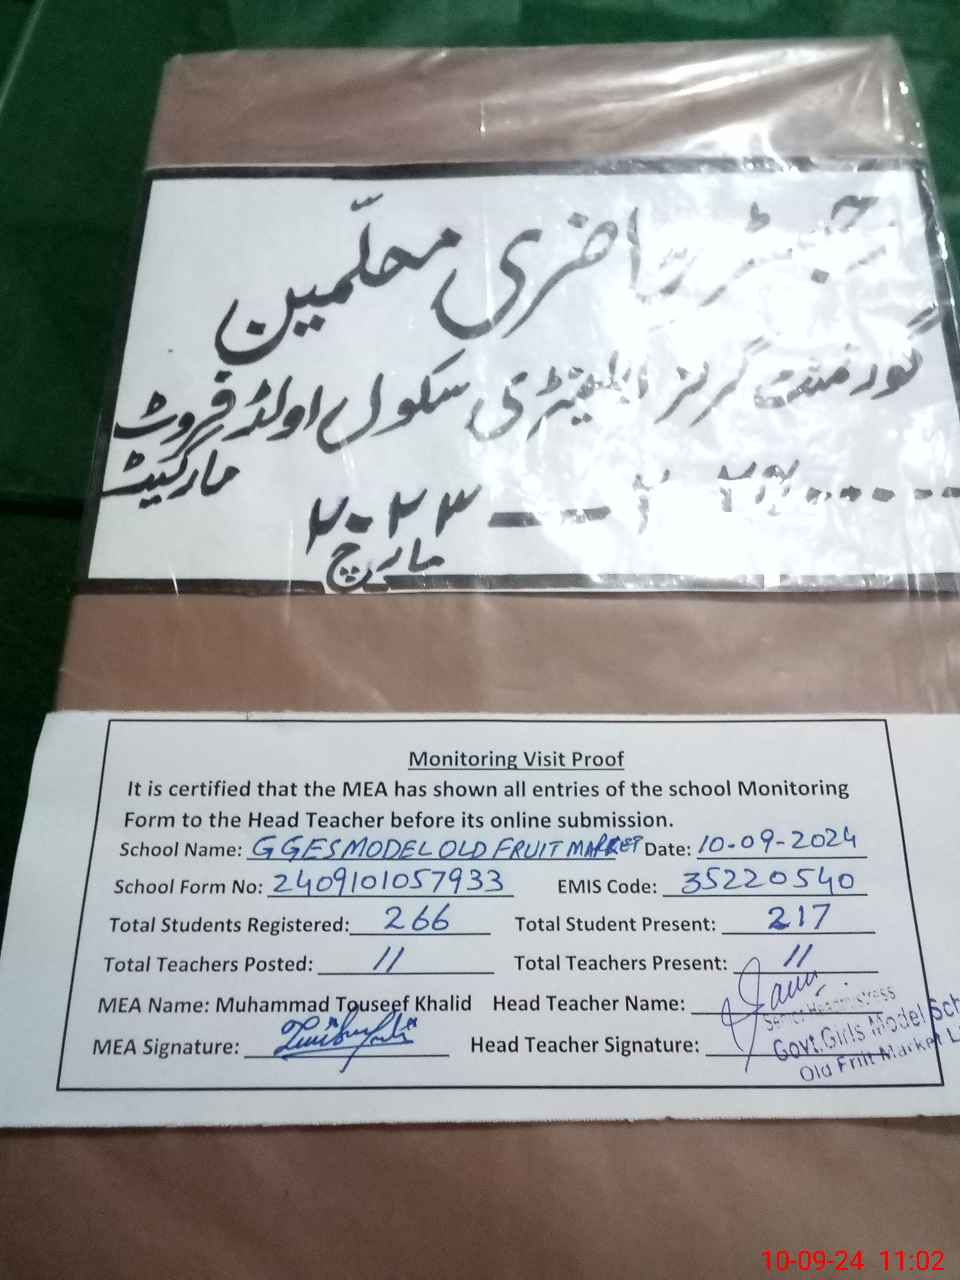 رجسٹر حاضری معلّمین
گورنمنٹ گرلز ایلیمنٹری سکول اولڈ فروٹ
مارکیٹ
۲۰۲۳ —
مارچ
Monitoring Visit Proof
It is certified that the MEA has shown all entries of the school Monitoring
Form to the Head Teacher before its online submission.
School Name: GGES MODEL OLD FRUIT MARKET Date: 10-09-2024
School Form No: 2409101057933 EMIS Code: 35220540
Total Students Registered: 266 Total Student Present: 217
Total Teachers Posted: 11 Total Teachers Present: 11
MEA Name: Muhammad Touseef Khalid Head Teacher Name:
Senior Headmistress
MEA Signature: Head Teacher Signature:
Govt.Girls Model Sch
Old Friit Market L
10-09-24 11:02